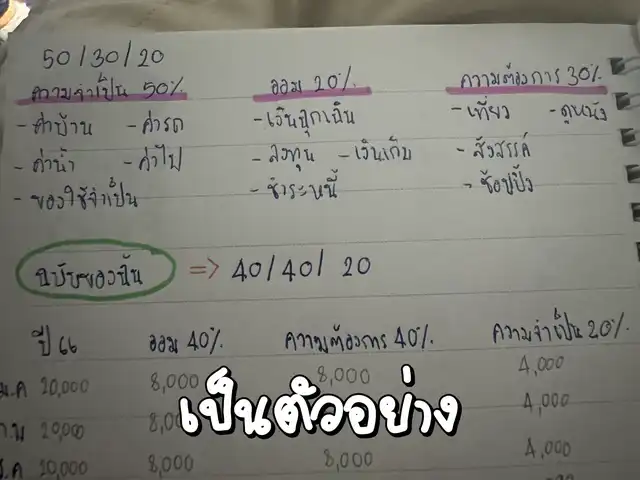 50/30/20
ความจำเป็น 50% ออม 20% ความต้องการ 30%
- ค่าบ้าน - ค่ารถ - เงินฉุกเฉิน - เที่ยว - ดูหนัง
- ค่าน้ำ - ค่าไฟ - ลงทุน - เงินเก็บ - สังสรรค์
- ของใช้จำเป็น - ชำระหนี้ - ช้อปปิ้ง
ฉบับของฉัน => 40/40/ 20
ปี 66 ออม 40% ความต้องการ 40% ความจำเป็น 20%
ม.ค 20,000 8,000 8,000 4,000
ก.พ 20,000 8,000 4,000
เป็นตัวอย่าง
มี.ค 20,000 8,000 8,000 4,000